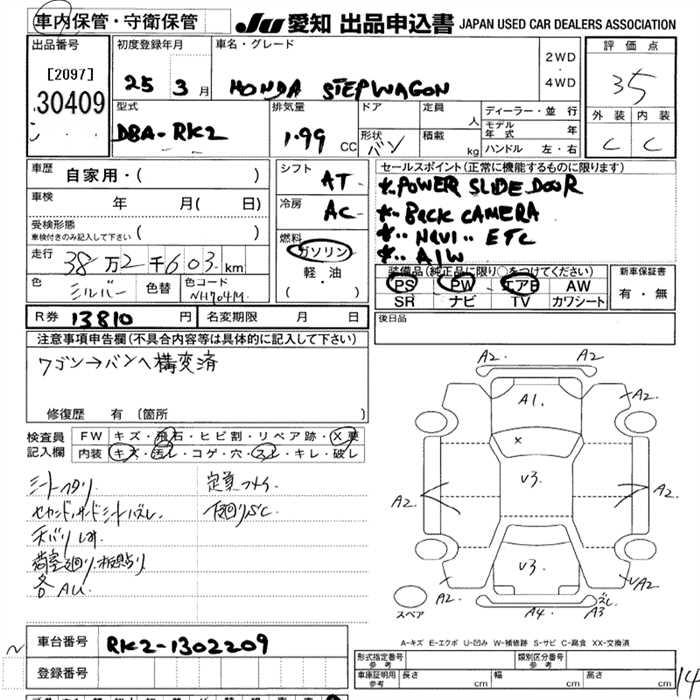 車内保管・守衛保管 JU 愛知 出品申込書 JAPAN USED CAR DEALERS ASSOCIATION
出品番号 初度登録年月 車名・グレード 評価点
[2097] 25 3月 HONDA STEPWAGON 2WD・4WD 35
30409 型式 排気量 ドア 定員 人 ディーラー・並行 外装 内装
DBA-RK2 1.99 CC 形状 バン 積載 kg モデル年式 年 C C
ハンドル 左・右
車歴 自家用・( ) シフト AT セールスポイント(正常に機能するものに限ります)
車検 年 月( 日) 冷房 AC *POWER SLIDE DOOR
受検形態 *・・BACK CAMERA
車検付きのみ記入して下さい ( ) 燃料 *・・NAVI・・ETC
走行 38万2千603km ガソリン *・・A/W
色 シルバー 色替 色コード NH704M 軽・油 (・) 装備品(純正品に限り○をつけてください) 新車保証書
PS PW エアB AW 有・無
SR ナビ TV カワシート
R券 13810円 名変期限 月 日 後日品
注意事項申告欄(不具合内容等は具体的に記入して下さい)
ワゴン→バンへ構変済
修復歴 有 (箇所 )
検査員 FW キズ・飛石・ヒビ割・リペア跡・X要
記入欄 内装 キズ・汚レ・コゲ・穴・スレ・キレ・破レ
シートヘタリ
セカンド、サードシートズレ
下廻りS.C
各AU
A2 A2
A1 A2
A2 V3 A2
V3
A2 A4 ズレ A3 A2
スペア
A-キズ E-エクボ U-凹み W-補修跡 S-サビ C-腐食 XX-交換済
車台番号 RK2-1302209
登録番号
形式指定番号 参考 類別区分番号 参考
車庫証明用 参考 長さ cm 幅 cm 高さ cm 14